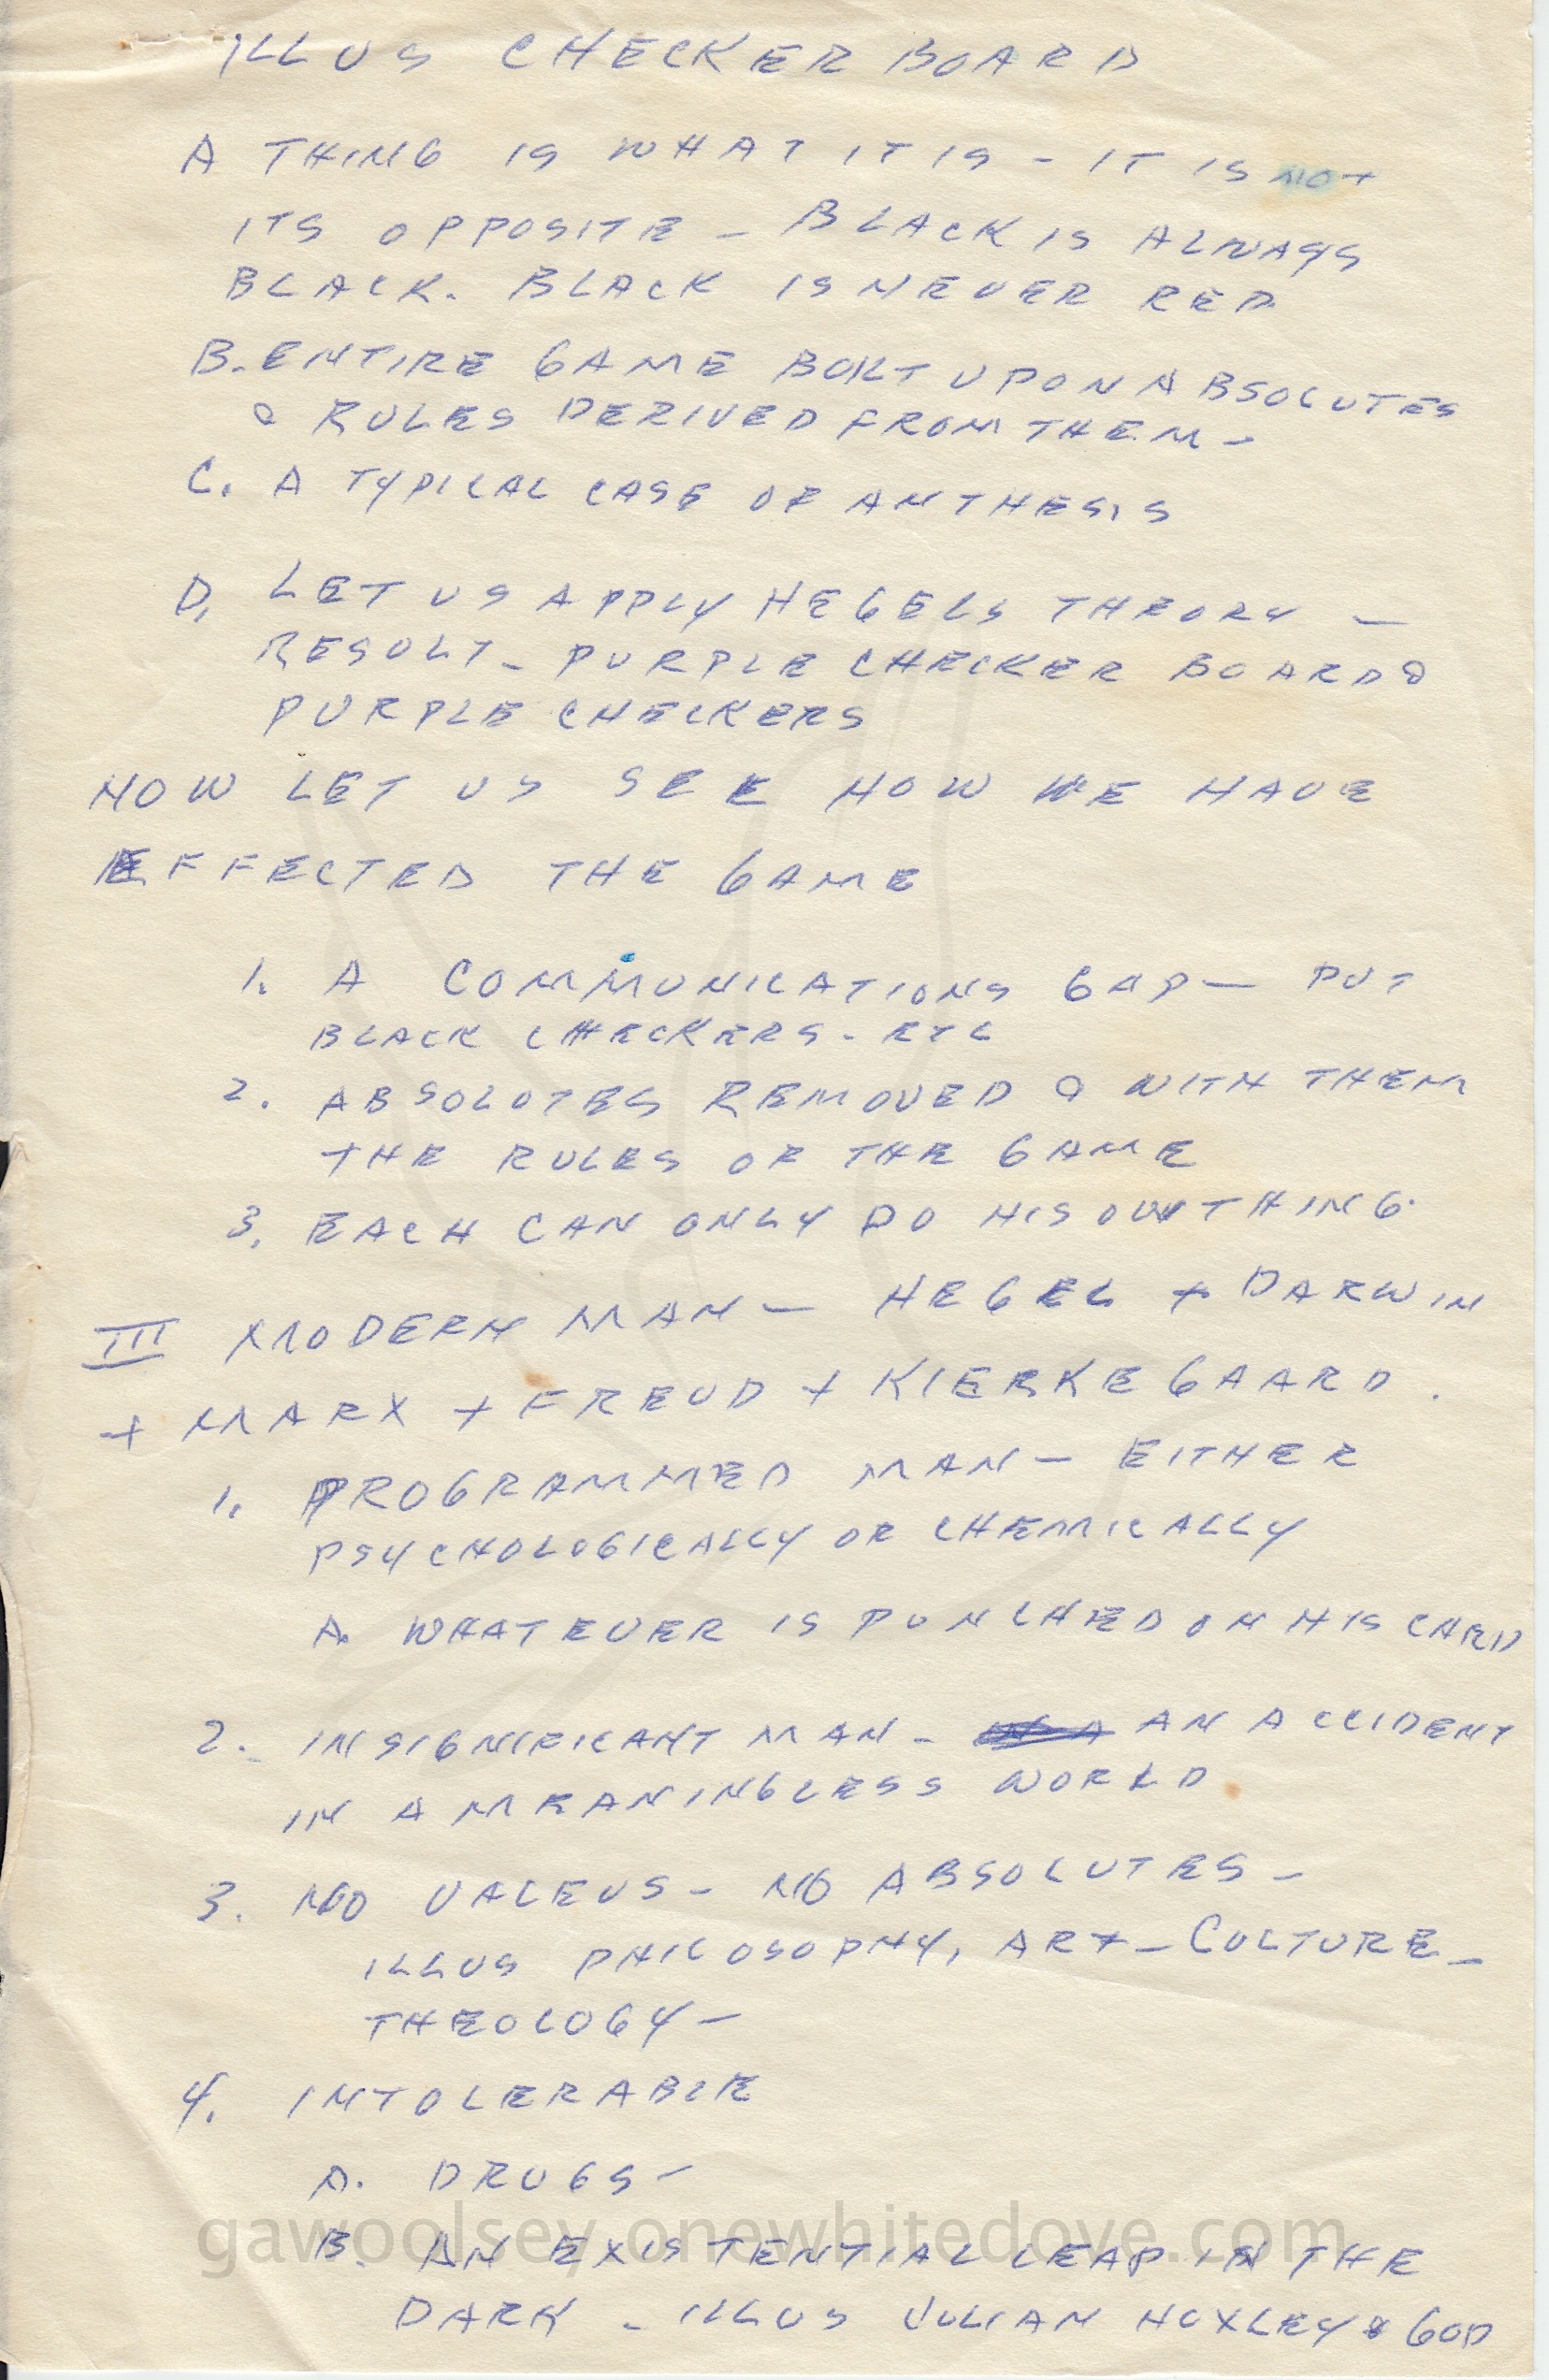 ILLUS CHECKER BOARD
A THING IS WHAT IT IS - IT IS NOT
ITS OPPOSITE - BLACK IS ALWAYS
BLACK. BLACK IS NEVER RED.
B. ENTIRE GAME BUILT UPON ABSOLUTES
& RULES DERIVED FROM THEM -
C. A TYPICAL CASE OF ANTHESIS
D. LET US APPLY HEGELS THEORY -
RESULT - PURPLE CHECKER BOARD &
PURPLE CHECKERS
NOW LET US SEE HOW WE HAVE
EFFECTED THE GAME
1. A COMMUNICATIONS GAP - PUT
BLACK CHECKERS - ETC
2. ABSOLUTES REMOVED & WITH THEM
THE RULES OF THE GAME
3. EACH CAN ONLY DO HIS OWN THING.
III MODERN MAN - HEGEL + DARWIN
+ MARX + FREUD + KIERKEGAARD.
1. PROGRAMMED MAN - EITHER
PSYCHOLOGICALLY OR CHEMICALLY
A. WHATEVER IS PUNCHED ON HIS CARD
2. INSIGNIFICANT MAN - AN ACCIDENT
IN A MEANINGLESS WORLD
3. NO VALEUS - NO ABSOLUTES -
ILLUS PHILOSOPHY, ART - CULTURE -
THEOLOGY -
4. INTOLERABLE
A. DRUGS -
B. AN EXISTENTIAL LEAP IN THE
DARK - ILLUS JULIAN HUXLEY & GOD
gawoolsey.onewhitedove.com